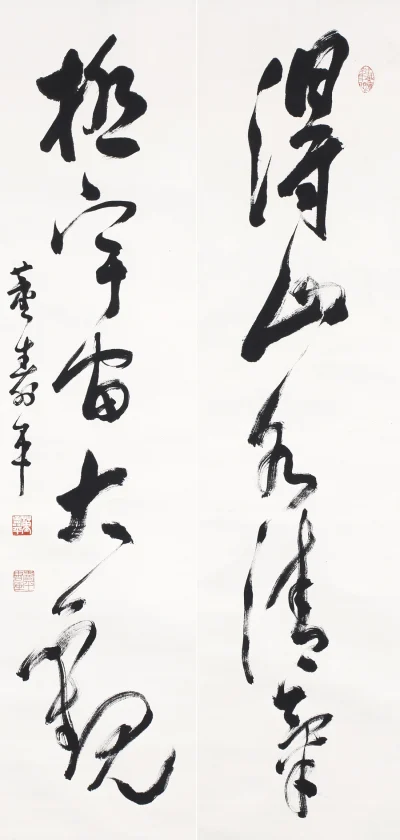 得山水清氣
極宇宙大觀
董壽平